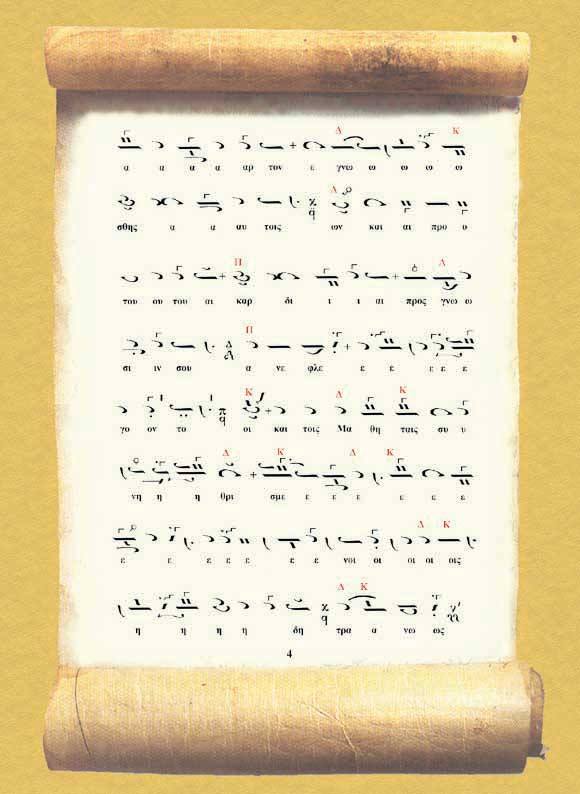 Δ Κ
α α α α αρ τον ε γνω ω ω ω ω
Δ
σθης α α αυ τοις ων και αι προ υ
Π Δ
του ου του αι καρ δι ι ι αι προς γνω ω
Π
σι ιν σου α νε φλε ε ε ε ε ε
Κ Δ Κ
γο ον το οι και τοις Μα θη ταις συ υ
Δ Κ Δ Κ
νη η η θρι σμε ε ε ε ε ε ε
Δ Κ
ε ε ε ε ε ε ε ε νοι οι οι οι οις
Δ Κ
η η η η δη τρα α νω ως
4